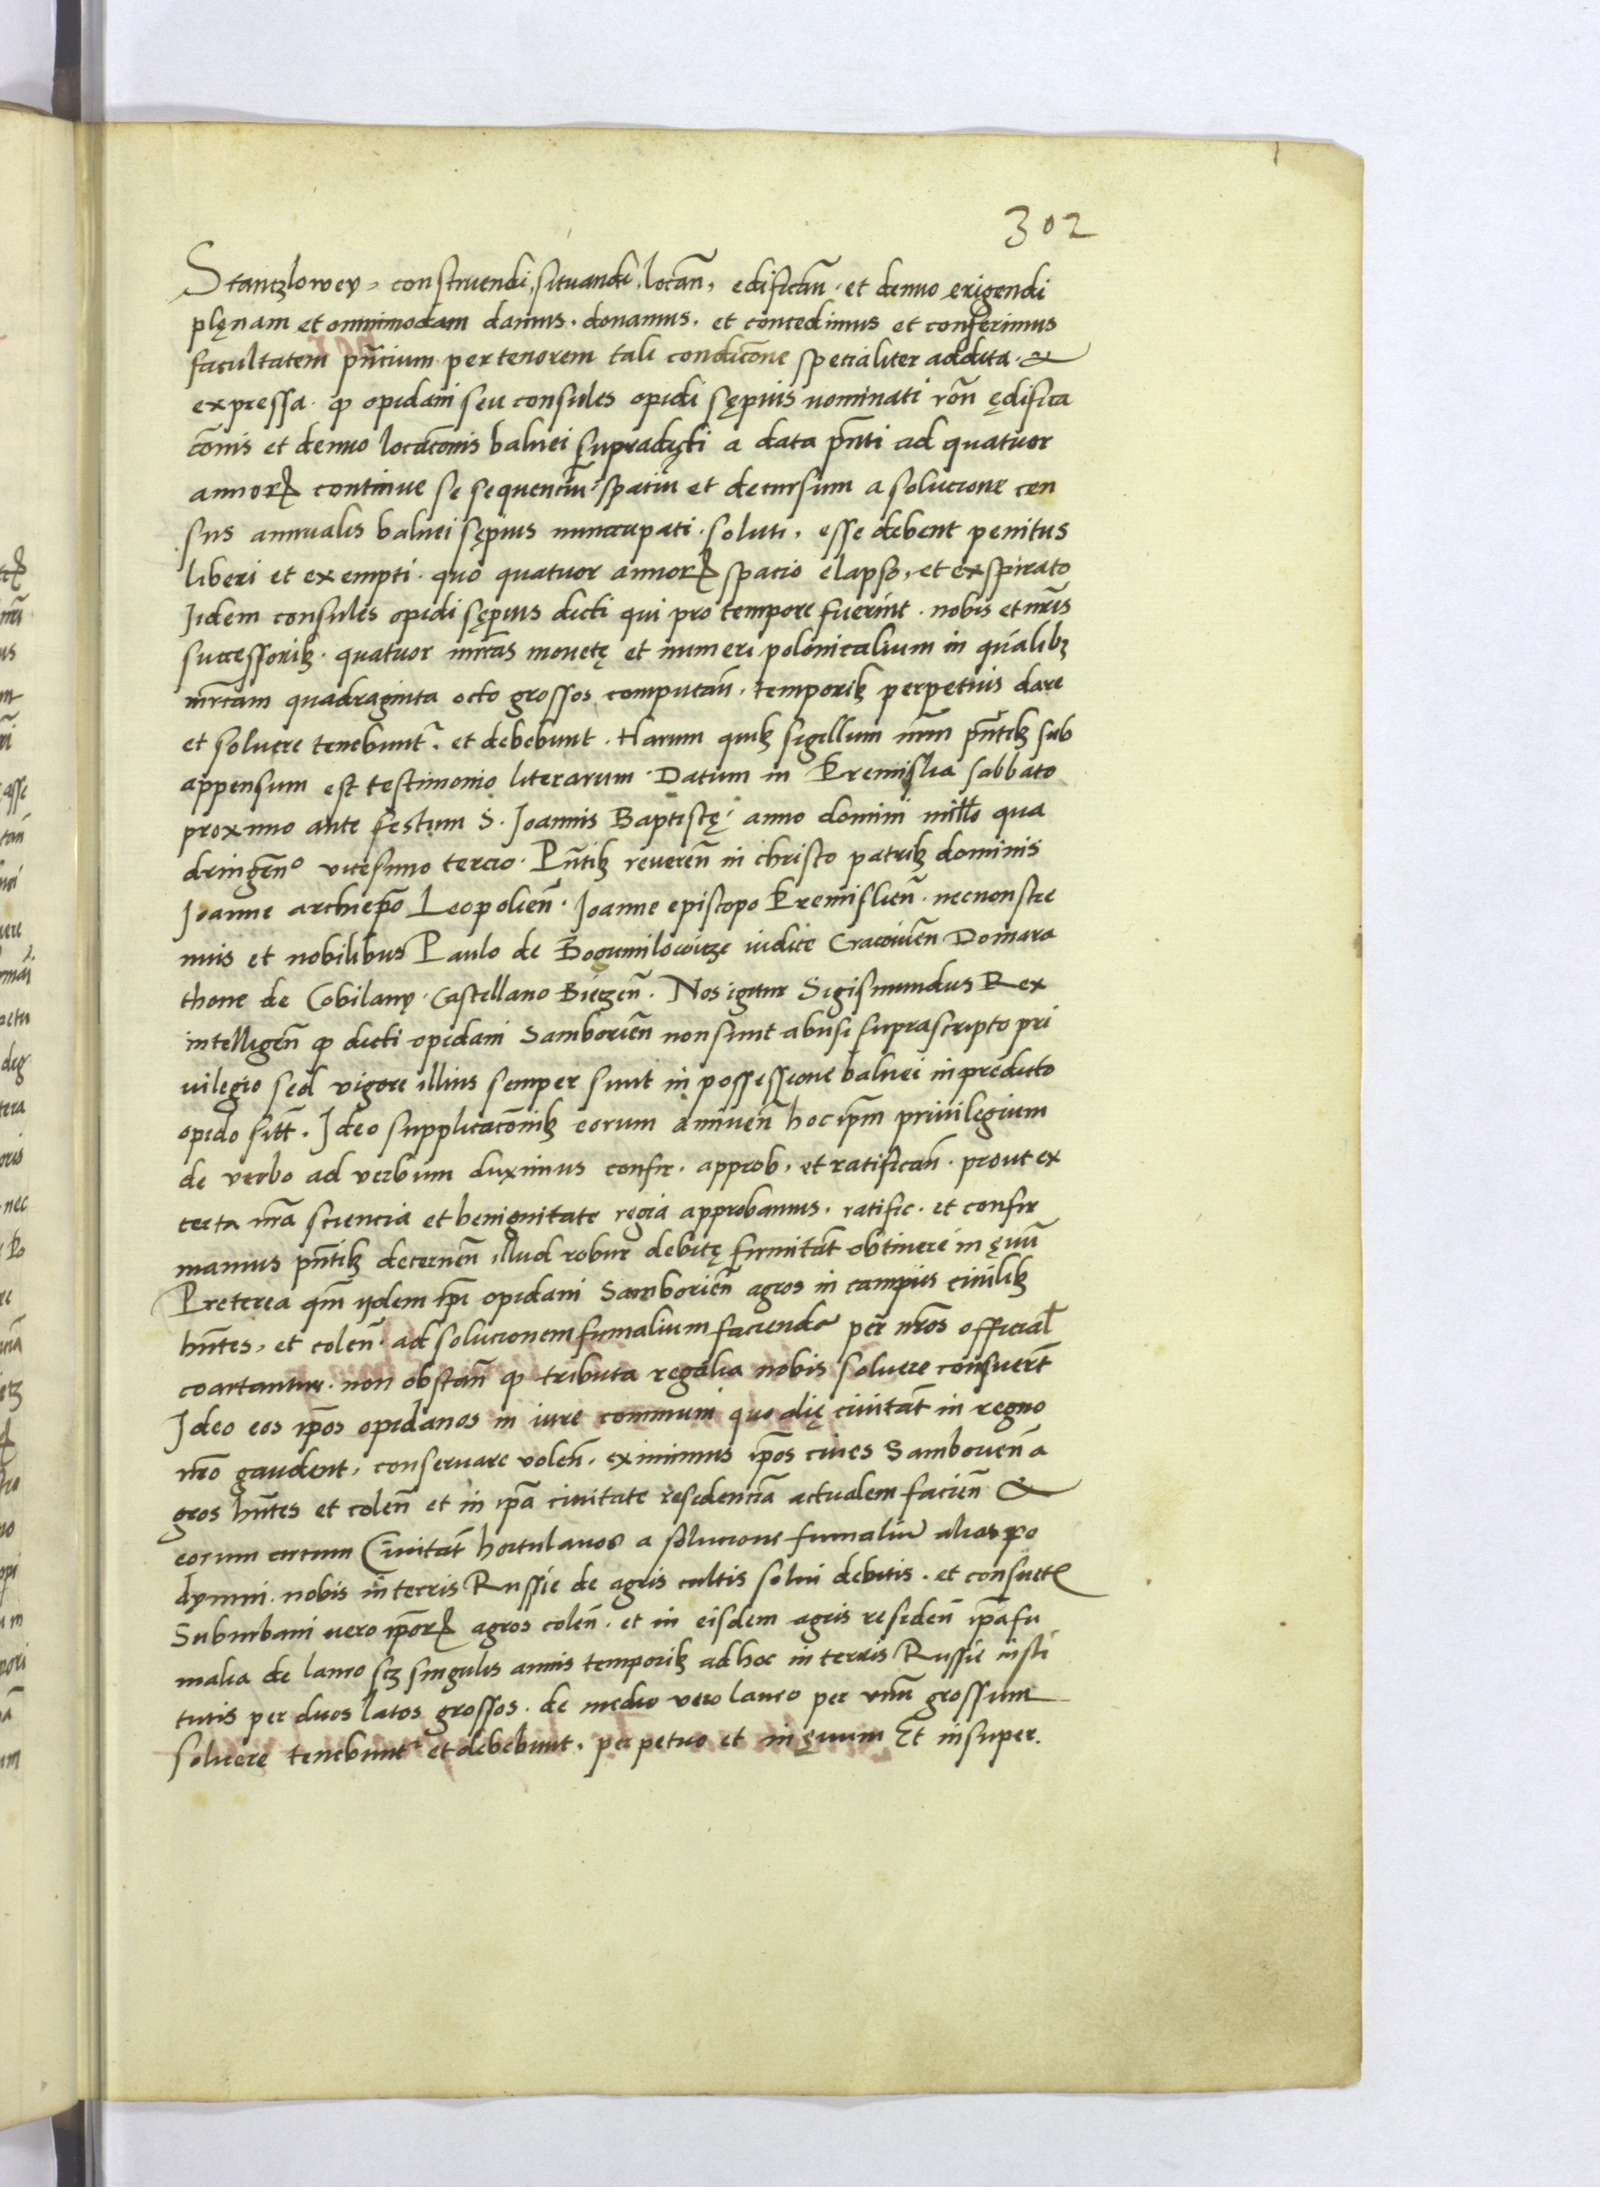 302
Stanczlowey, construendi, situandi, locan̄, edifican̄. et denuo erigendi
plęnam et omnimodam damus. donamus. et concedimus et conferimus
facultatem pn̄cium per tenorem tali condicōne specialiter addita. &
expressa. ꝙ opidani seu consules opidi sępius nominati rōn ędifica
cōnis et denuo locacōnis balnei supradicti a data pn̄ti ad quatuor
annorꝝ continue se sequenciū spatiū et decursum a solucione cen
sus annualis balnei sępius nuncupati. soluti, esse debent penitus
liberi et exempti. quo quatuor annorꝝ spacio elapso, et exspirato
Iidem consules opidi sępius dicti qui pro tempore fuerint. nobis et nr̄is
successoribꝫ. quatuor mr̄cas monetę et numeri polonicalium in qualibꝫ
mr̄cam quadraginta octo grossos computan̄. temporibꝫ perpetuis dare
et soluere tenebunt᷑. et debebunt. Harum quibꝫ sigillum nr̄m pn̄tibꝫ sub
appensum est testimonio literarum. Datum in Premislia sabbato
proximo ante festum S. Ioannis Baptistę. anno domini mill̄o qua
dringen̄o vicesimo tercio. Pn̄tibꝫ reveren̄ in christo patribꝫ dominis
Ioanne archiepō Leopolien̄. Ioanne episcopo Premislien̄. necnon stre
nuis et nobilibus Paulo de Bogumilowicze iudice Cracovien̄ Domara
thone de Cobilany. Castellano Biecen̄. Nos igitur Sigismundus Rex
intelligen̄ ꝙ dicti opidani Samborien̄ non sunt abusi suprascripto pri
uilegio sed vigore illius semper sunt in possessione balnei in predicto
opido sitt̄. Ideo supplicacōnibꝫ eorum annuen̄ hoc ip̄m priuilegium
de verbo ad verbum duximus confir. approb, et ratifican̄. prout ex
certa nr̄a sciencia et benignitate regia approbamus. ratific. et confir
mamus pn̄tibꝫ decernen̄ illud robur debitę firmitat̄ obtinere in ęuū
Preterea qm̄ ijdem ip̄i opidani Samborien̄ agros in campis ciuilibꝫ
hn̄tes, et colen̄. ad solucionem fumalium facienda per nr̄os official̄
coartantur. non obstan̄ ꝙ tributa regalia nobis soluere consuert̄
Ideo eos ip̄os opidanos in iure communi quo alię ciuitat̄ in regno
nr̄o gaudent, conseruare volen̄. eximimus ip̄os ciues Samborien̄ a
gros hn̄tes et colen̄ et in ip̄a ciuitate residenciā actualem facien̄ &
eorum circum Ciuitat̄ hortulanos a solucione fumaliū alias po
dymni. nobis in terris Russie de agris cultis solui debitis. et consuetꝭ
Suburbani vero ip̄orꝝ agros colen̄. et in eisdem agris residen̄ ip̄a fu
malia de laneo scꝫ singulis annis temporibꝫ ad hoc in terris Russie insti
tutis per duos latos grossos. de medio vero laneo per vnū grossum
soluere tenebunt᷑ et debebunt, perpetuo et in ęuum Et insuper.